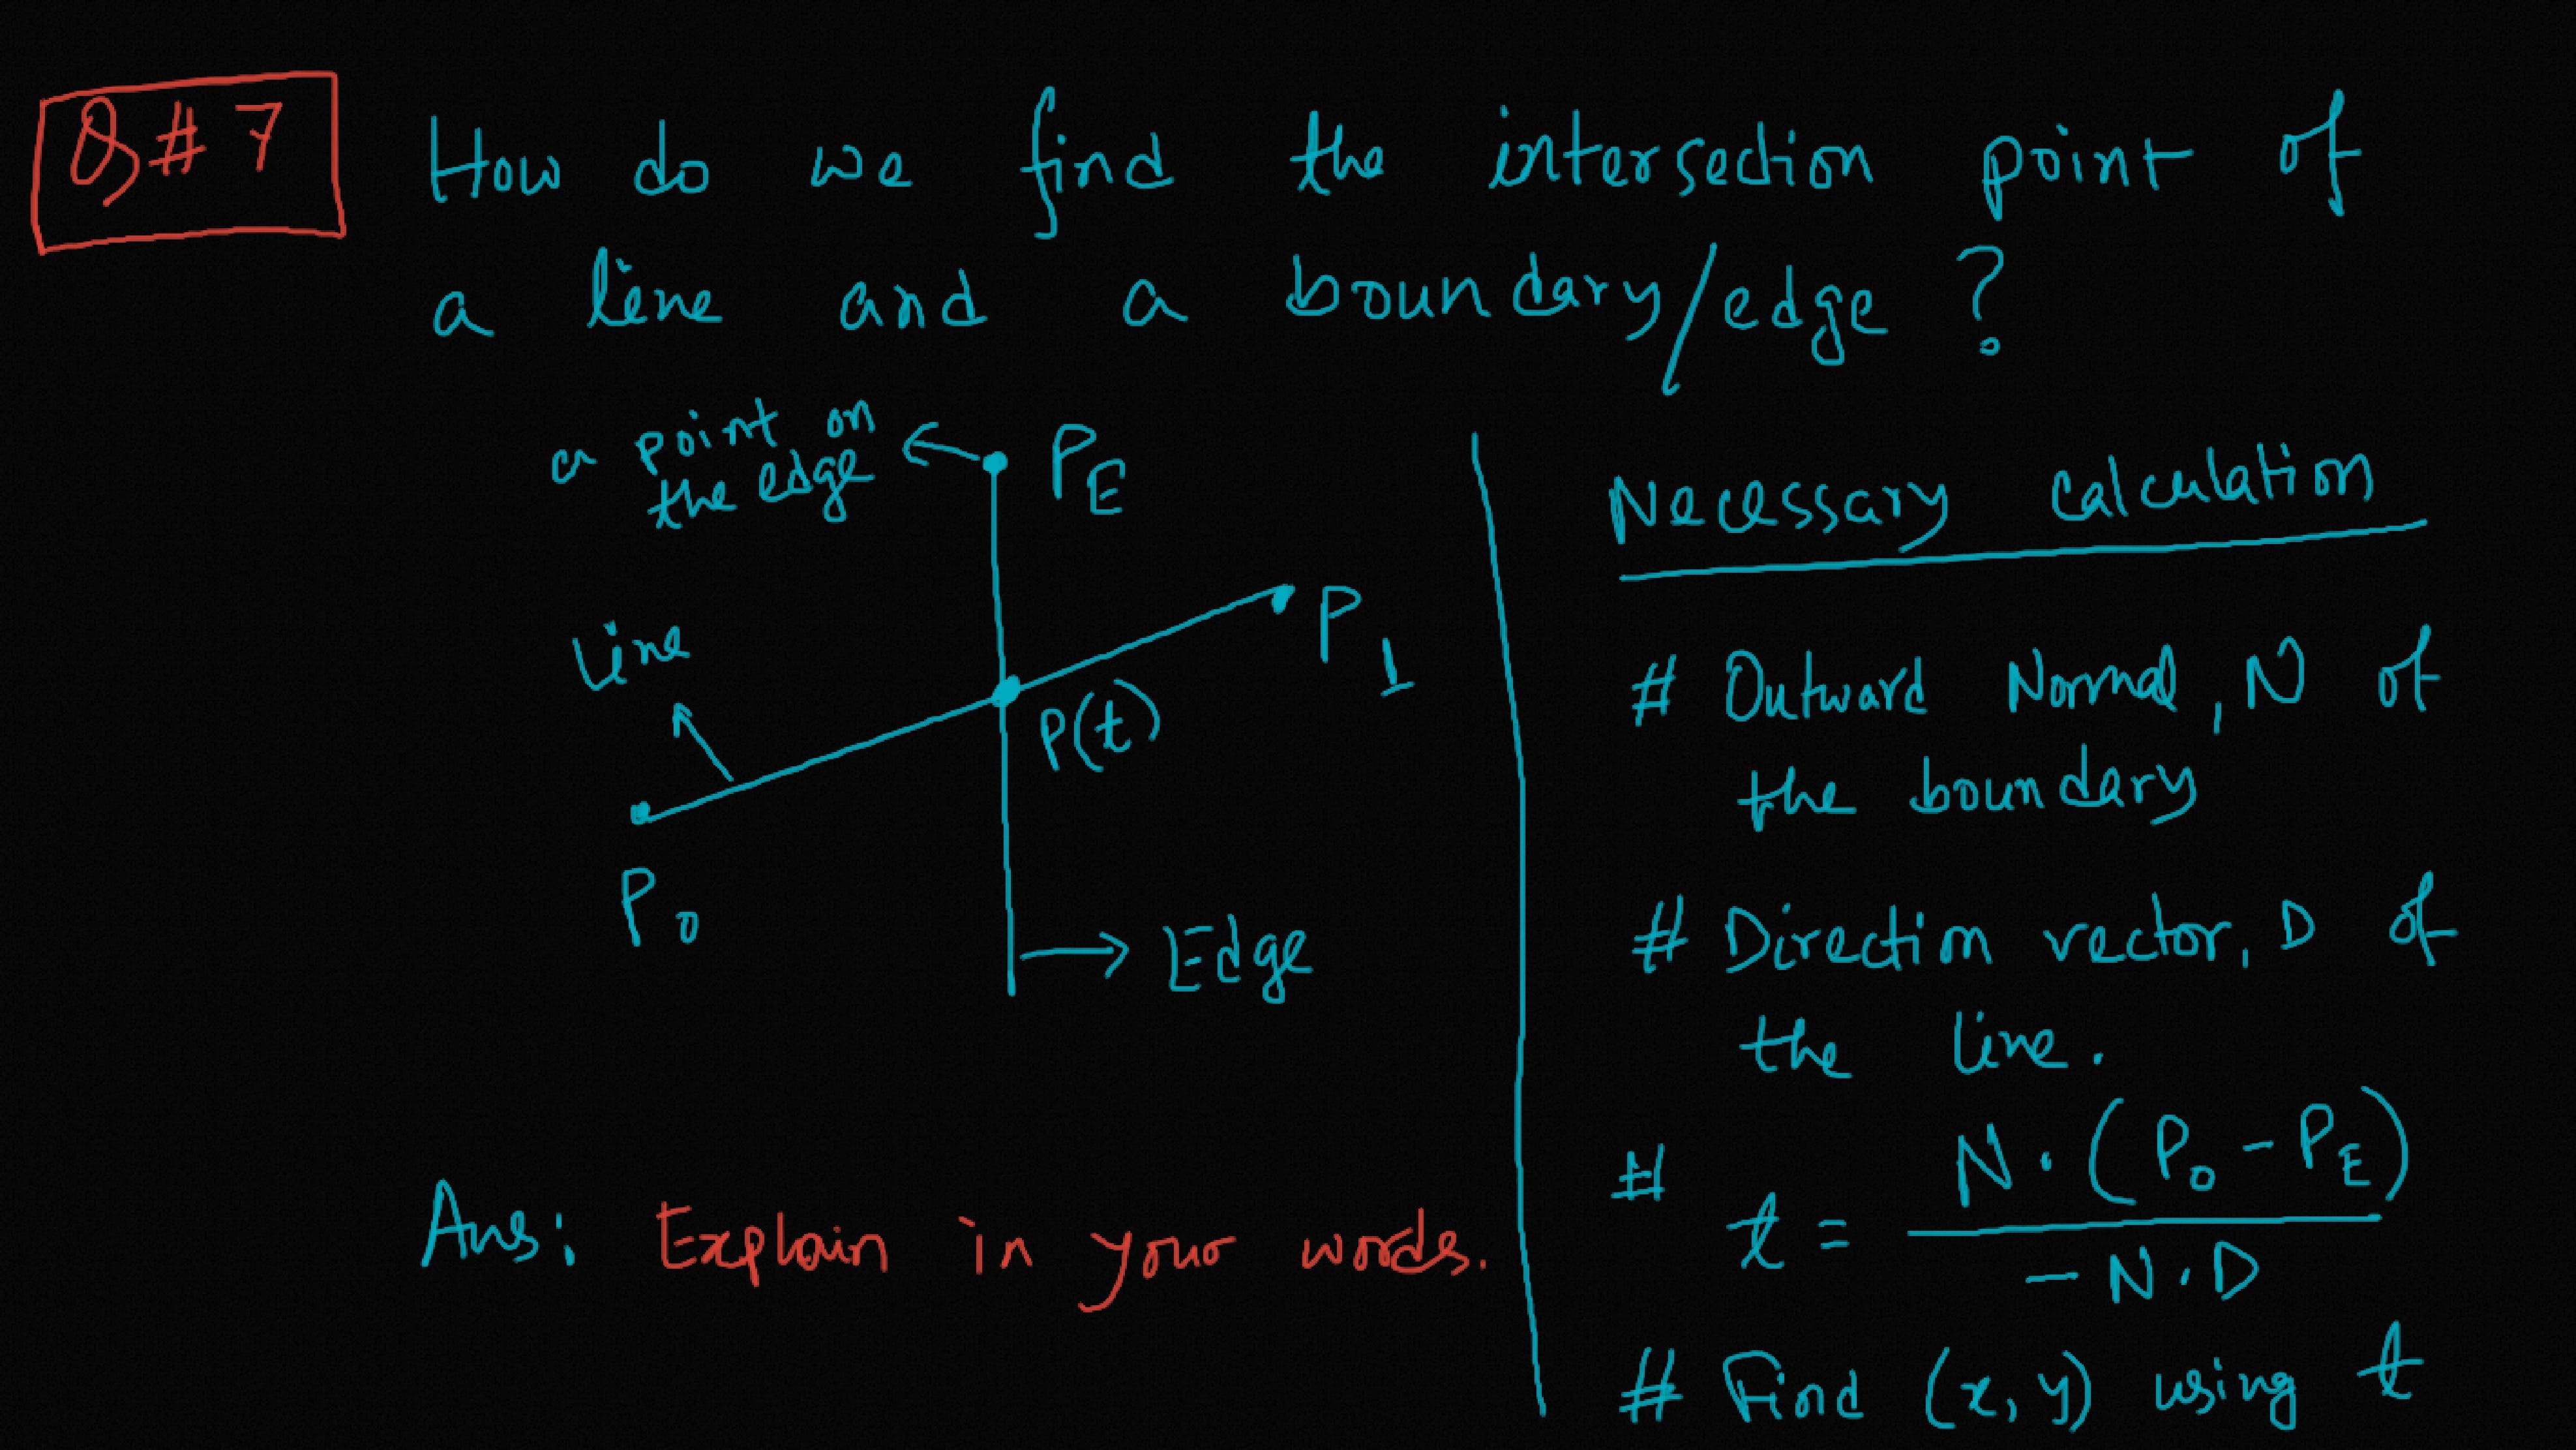 Q#7
How do we find the intersection point of
a line and a boundary/edge?
a point on
the edge
P_E
Line
P_1
P(t)
P_0
Edge
Ans: Explain in your words.
Necessary Calculation
# Outward Normal, N of
the boundary
# Direction vector, D of
the line.
# t = N · (P_0 - P_E) / - N · D
# Find (x, y) using t